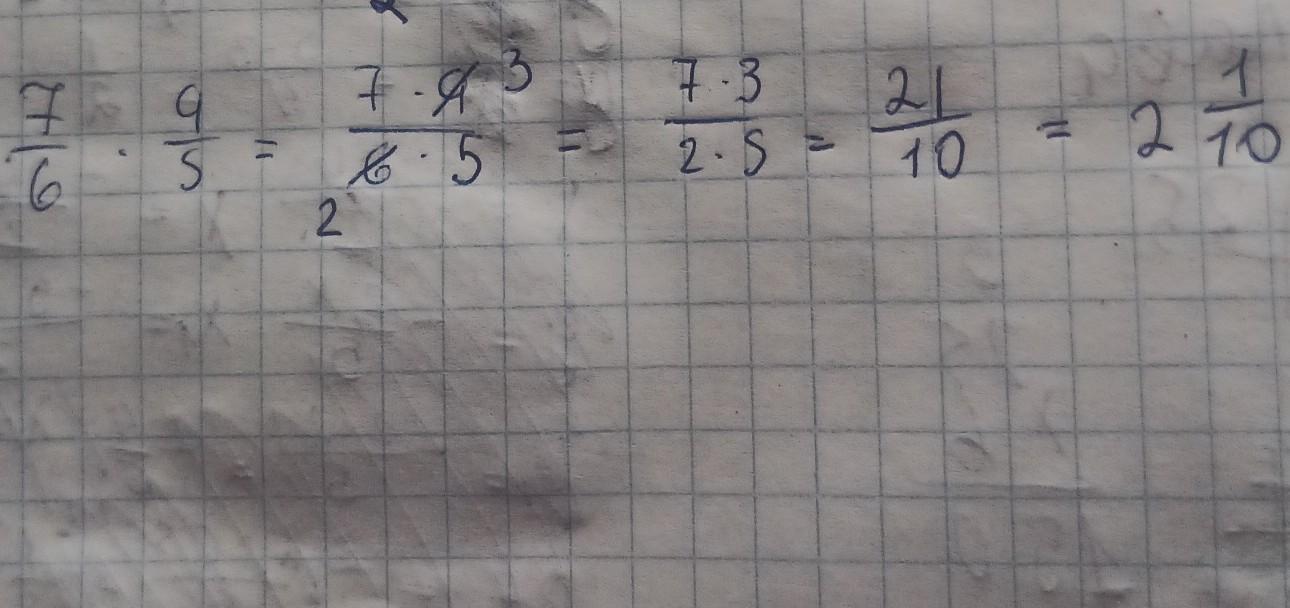 7/6 · 9/5 = 7 · 9 3/2 6 · 5 = 7 · 3/2 · 5 = 21/10 = 2 1/10